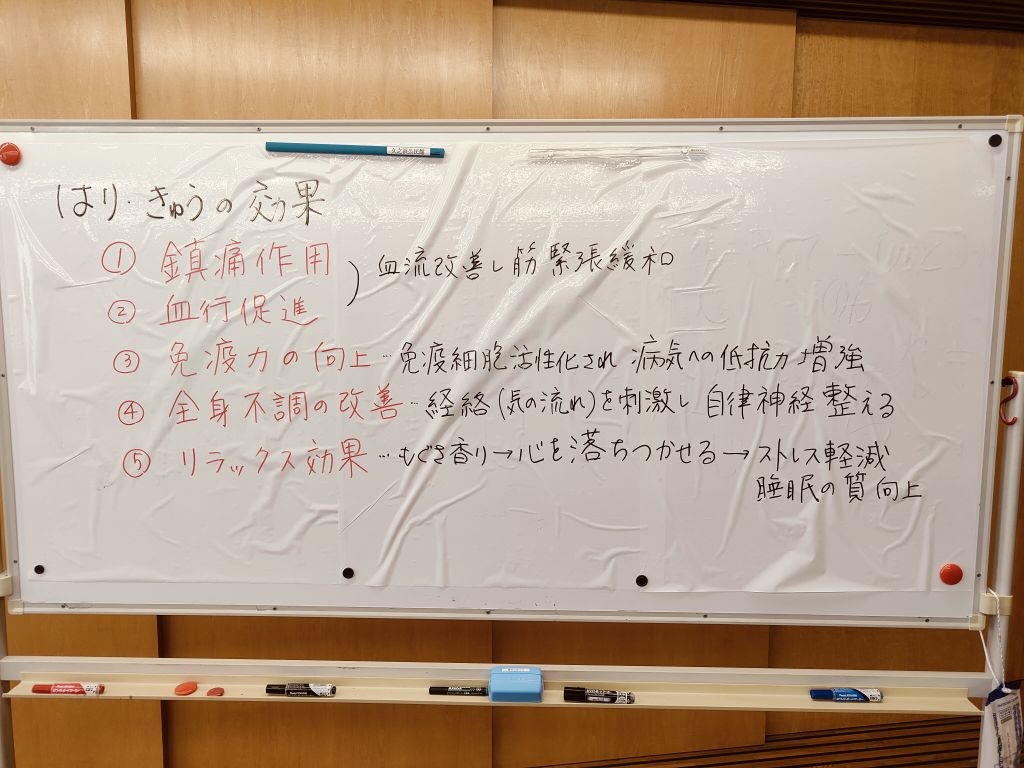 はり・きゅうの効果
① 鎮痛作用
② 血行促進
) 血流改善し筋緊張緩和
③ 免疫力の向上…免疫細胞活性化され 病気への低抗力増強
④ 全身不調の改善…経絡(気の流れ)を刺激し 自律神経整える
⑤ リラックス効果…もぐさ香り→心を落ちつかせる→ストレス軽減
睡眠の質向上